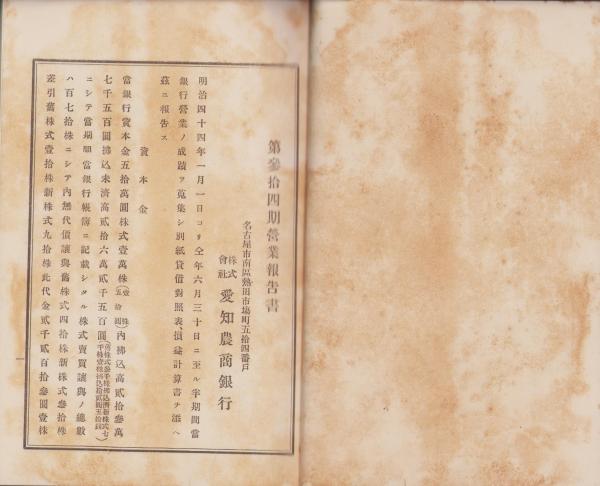 第參拾四期營業報告書
名古屋市南區熱田市場町五拾四番戶
株式會社 愛知農商銀行
明治四十四年一月一日ヨリ仝年六月三十日ニ至ル半期間當
銀行營業ノ成蹟ヲ蒐集シ別紙貸借對照表、損益計算書ヲ添ヘ
茲ニ報告ス
資本金
當銀行資本金五拾萬圓株式壹萬株(壹株五拾圓)內拂込高貳拾參萬
七千五百圓拂込未濟高貳拾六萬貳千五百圓
ニシテ當期間當銀行帳簿ニ記載シタル株式賣買讓與ノ總數
ハ百七拾株ニシテ內無代價讓與舊株式四拾株新株式參拾株
差引舊株式壹拾株新株式九拾株此代金貳千貳百拾參圓壹株